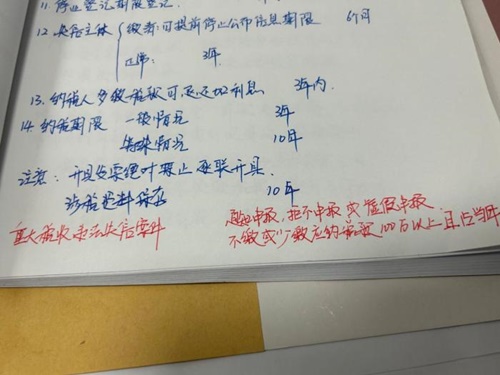 11. 停业登记期限登记.
12. 失信主体 { 缴清:可提前停止公布信息期限 6个月
正常: 3年
13. 纳税人多缴税款可退还加利息 3年内.
14. 纳税期限 一般情况 3年
特殊情况 10年
注意: 开具发票 禁止 联开具.
涉税资料保存 10年
重大税收违法失信案件
申报, 拒不申报 或 虚假申报
不缴或少缴应纳税款 100万以上 且占当年